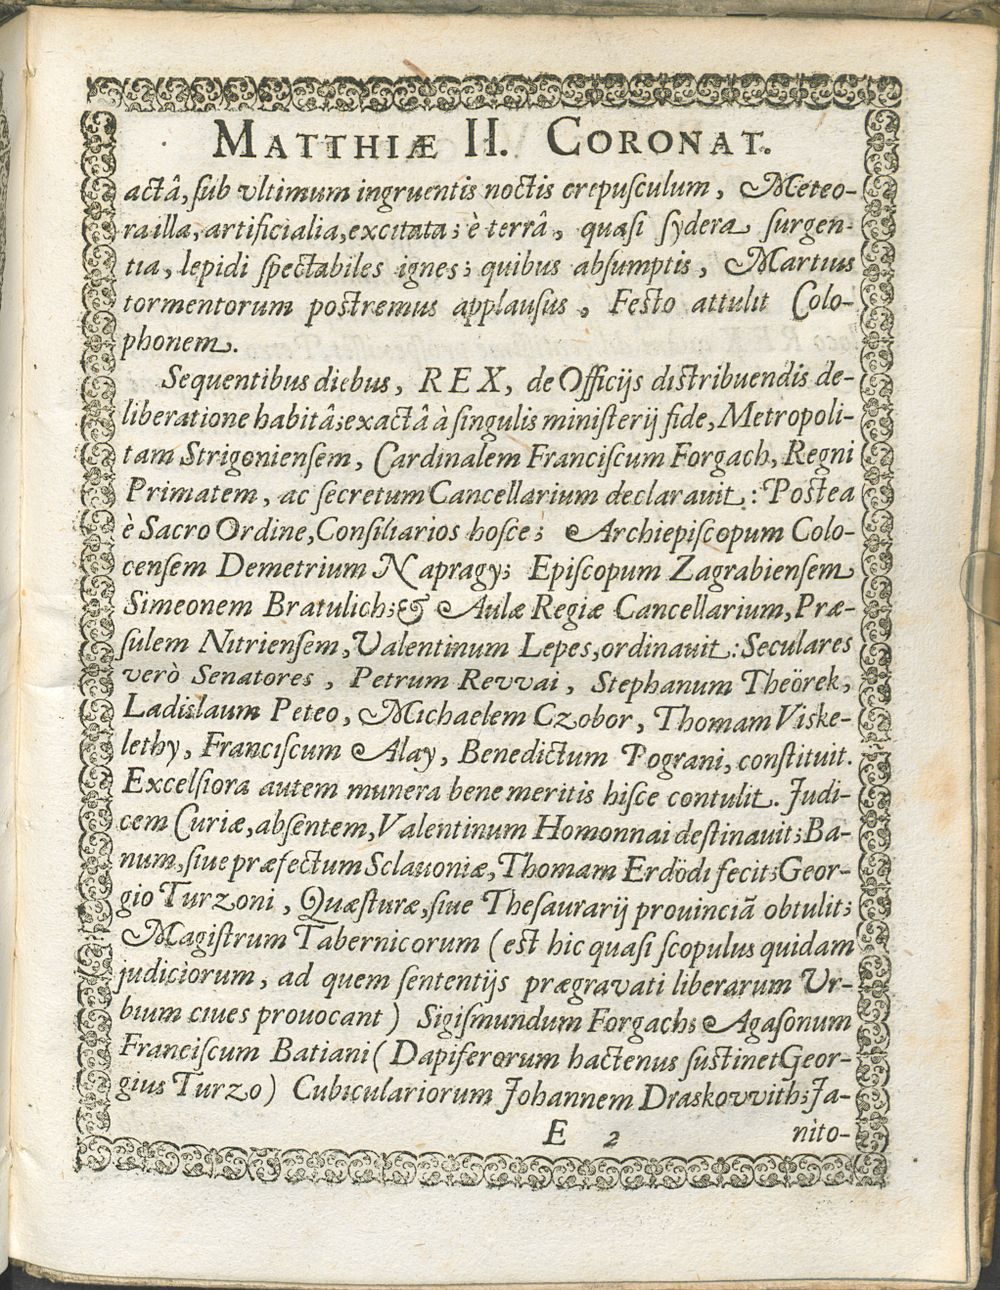 MATTHIÆ II. CORONAT.
actâ, sub vltimum ingruentis noctis crepusculum, Meteo-
ra illa, artificialia, excitata; è terrâ, quasi sydera surgen-
tia, lepidi spectabiles ignes; quibus absumptis, Martius
tormentorum postremus applausus, Festo attulit Colo-
phonem.
Sequentibus diebus, REX, de Officijs distribuendis de-
liberatione habitâ; exactâ à singulis ministerij fide, Metropoli-
tam Strigoniensem, Cardinalem Franciscum Forgach, Regni
Primatem, ac secretum Cancellarium declarauit: Postea
è Sacro Ordine, Consiliarios hosce; Archiepiscopum Colo-
censem Demetrium Napragy; Episcopum Zagrabiensem
Simeonem Bratulich; & Aulæ Regiæ Cancellarium, Præ-
sulem Nitriensem, Valentinum Lepes, ordinauit: Seculares
verò Senatores, Petrum Revvai, Stephanum Theörek,
Ladislaum Peteo, Michaelem Czobor, Thomam Viske-
lethy, Franciscum Alay, Benedictum Pograni, constituit.
Excelsiora autem munera bene meritis hisce contulit. Judi-
cem Curiæ, absentem, Valentinum Homonnai destinauit; Ba-
num, siue præfectum Sclauoniæ, Thomam Erdödi fecit; Geor-
gio Turzoni, Quæsturæ, siue Thesaurarij prouinciã obtulit;
Magistrum Tabernicorum (est hic quasi scopulus quidam
judiciorum, ad quem sententijs prægravati liberarum Vr-
bium ciues prouocant) Sigismundum Forgach; Agasonum
Franciscum Batiani (Dapiferorum hactenus sustinet Geor-
gius Turzo) Cubiculariorum Johannem Draskovvith; Ja-
E 2 nito-